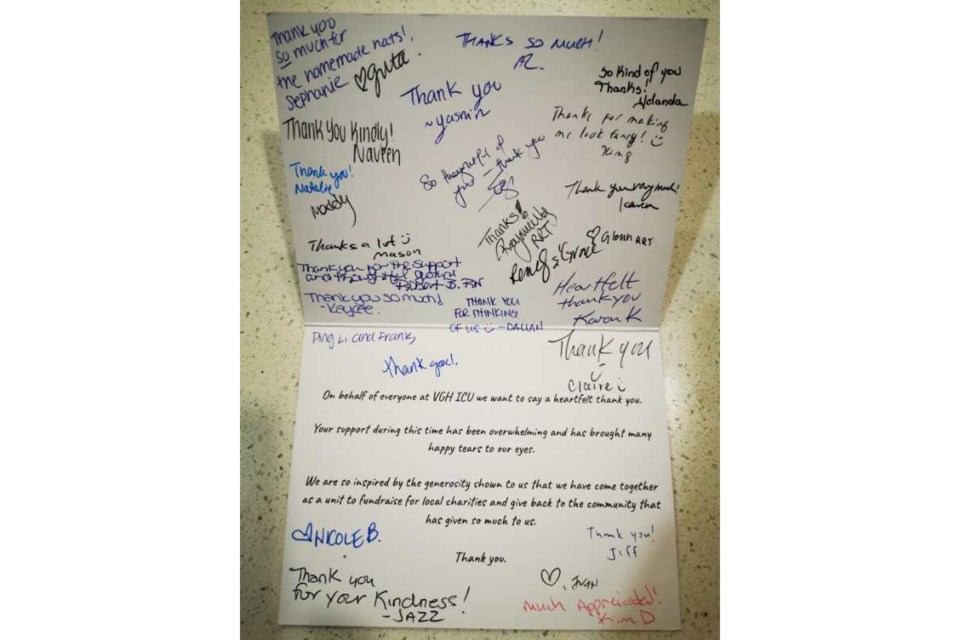 Thank you
so much for
the homemade hats!
Sephanie
THANKS SO MUCH!
Thank you
~ Yasmin
So kind of you
Thanks!
Yolanda
Thanks for making
me look fancy!
King
Thank you Kindly!
Naveen
So thoughtful of
you - thank you
Thank you!
Natalie
Thank you very much!
Karen
Thanks!
RRT
Thanks a lot
Mason
Thank you for the support
and thoughtful
Robert B. RN
Thank you so much!
- Kaycee.
THANK YOU
FOR THINKING
OF US - DALLAN
Heartfelt
thank you
Karen K
Ping Li and Frank,
Thank you!
Thank you
Claire
On behalf of everyone at VGH ICU we want to say a heartfelt thank you.
Your support during this time has been overwhelming and has brought many
happy tears to our eyes.
We are so inspired by the generosity shown to us that we have come together
as a unit to fundraise for local charities and give back to the community that
has given so much to us.
NICOLE B.
Thank you!
Jiff
Thank you.
Thank you
for your Kindness!
- JAZZ
Much Appreciated!
Kim D